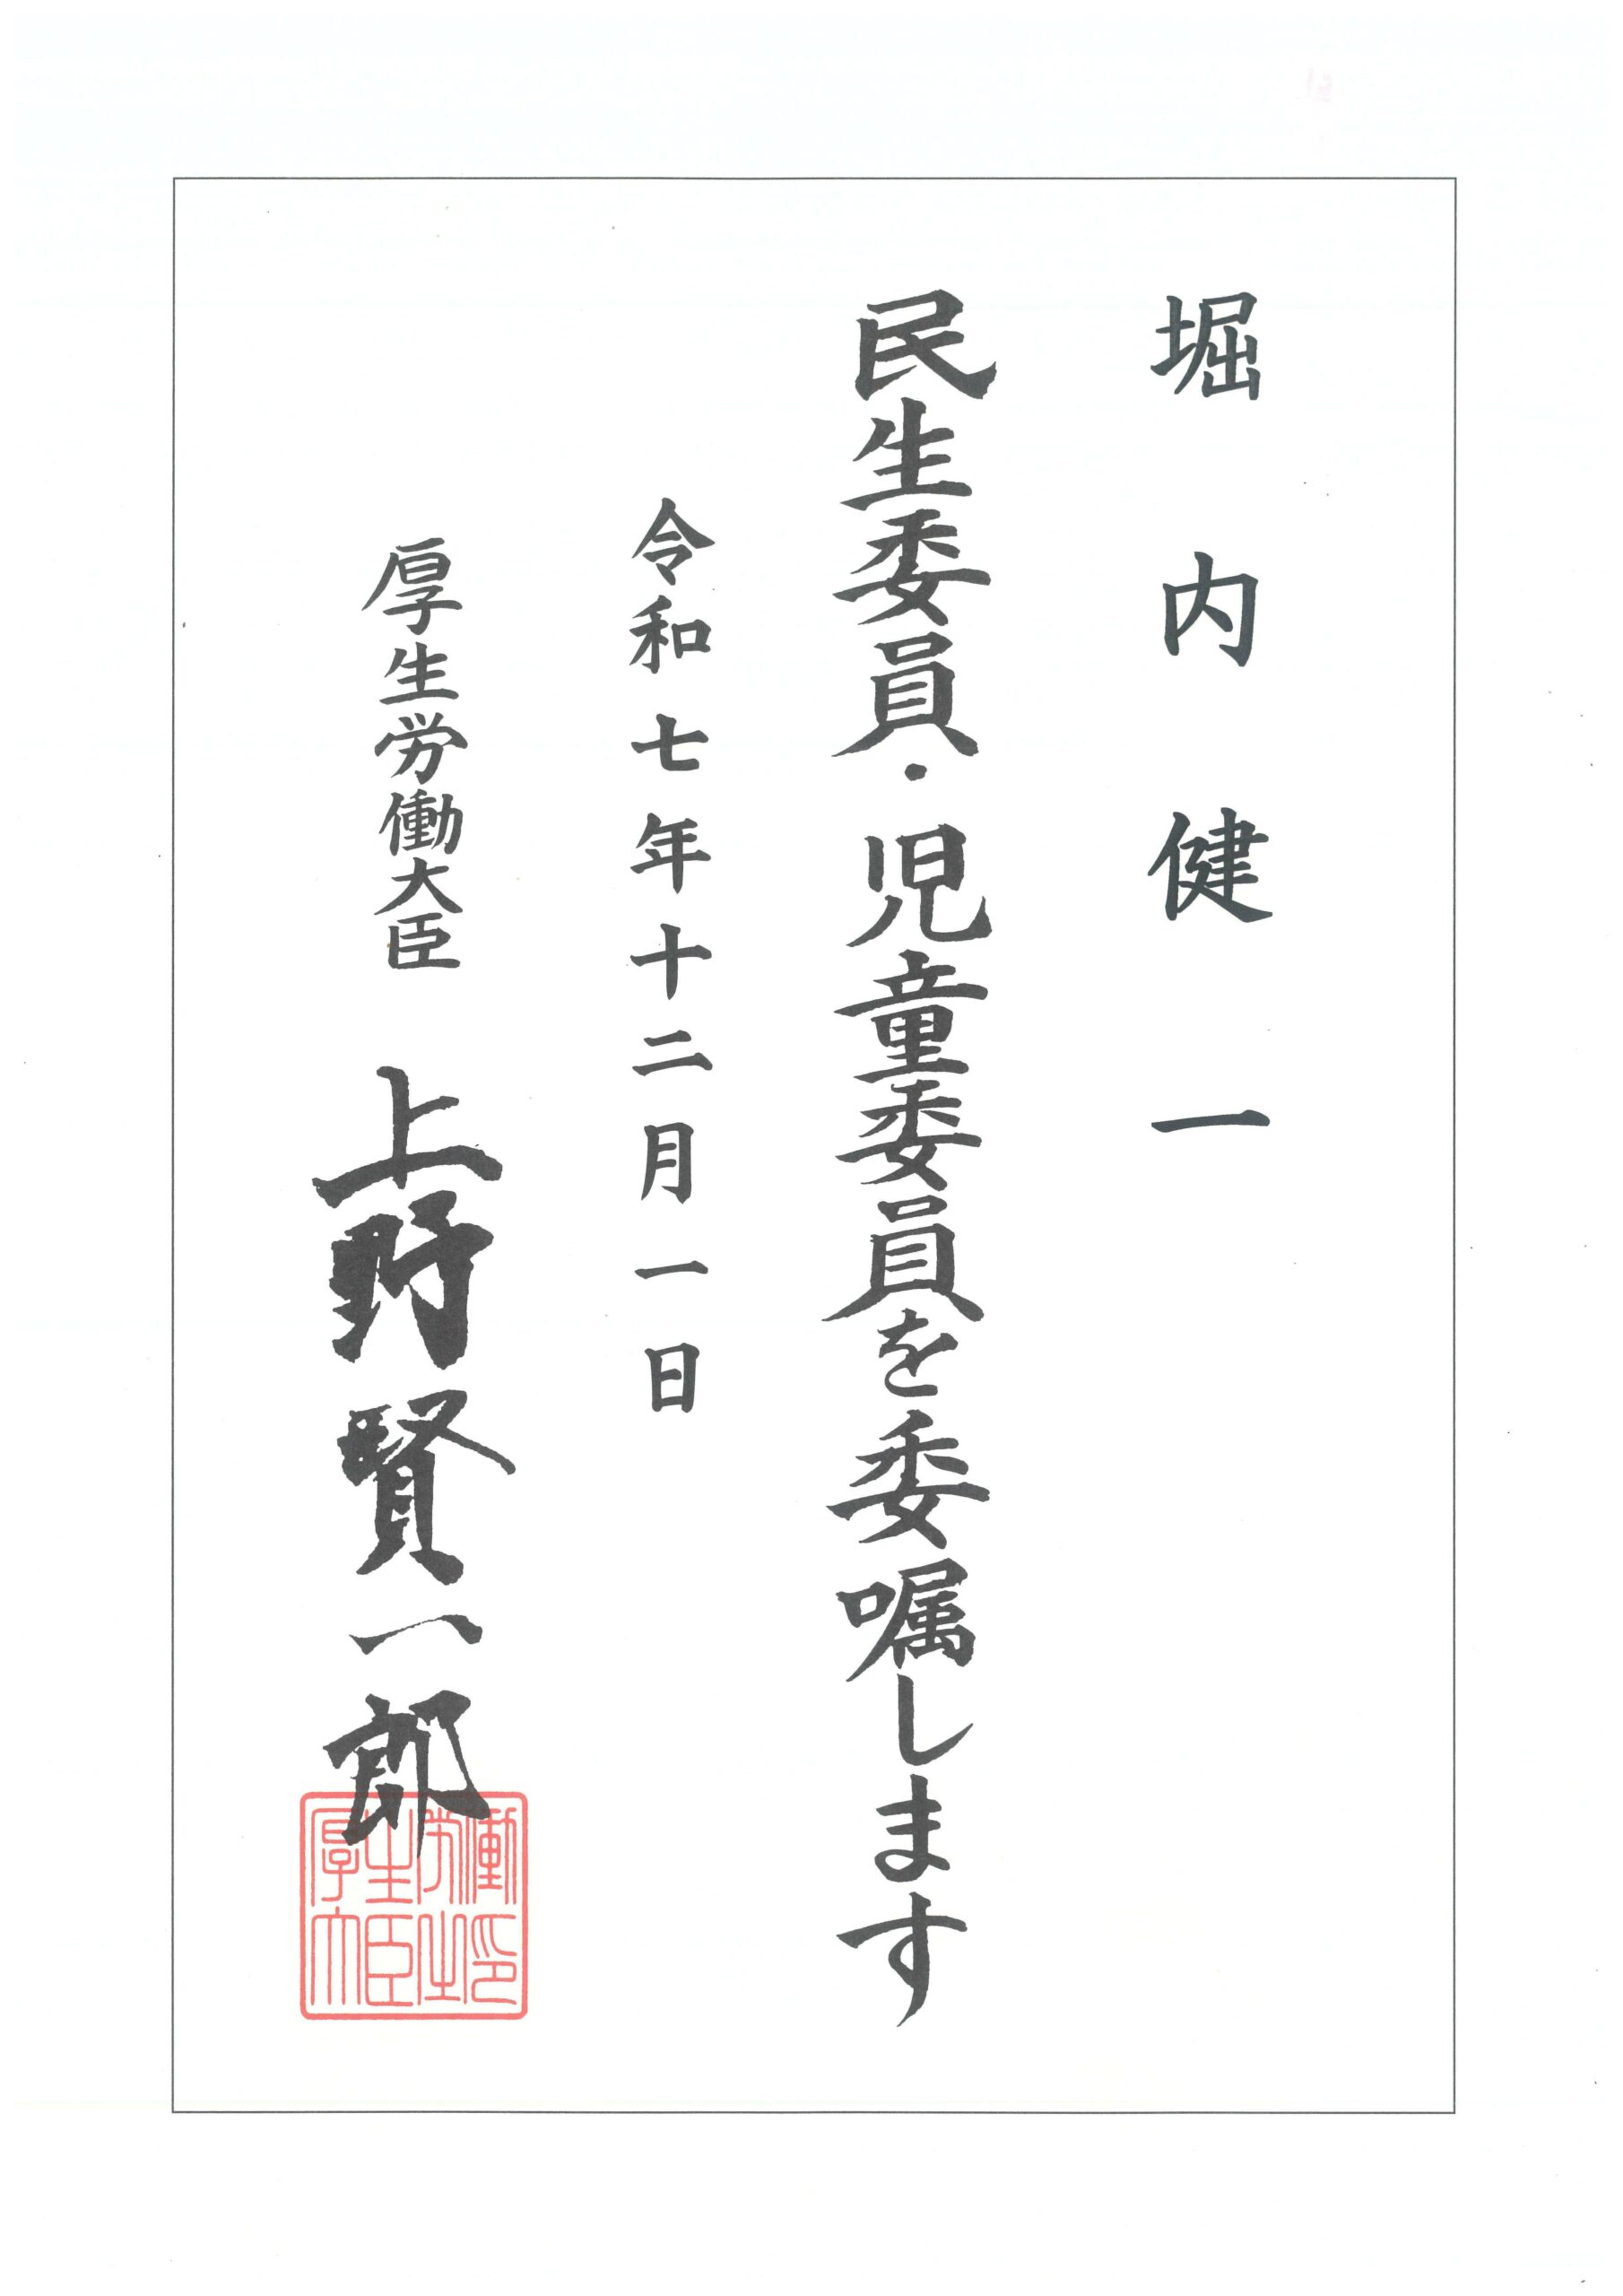 堀内健一
民生委員・児童委員を委嘱します
令和七年十二月一日
厚生労働大臣 上野賢一郎
厚生労働
大臣之印